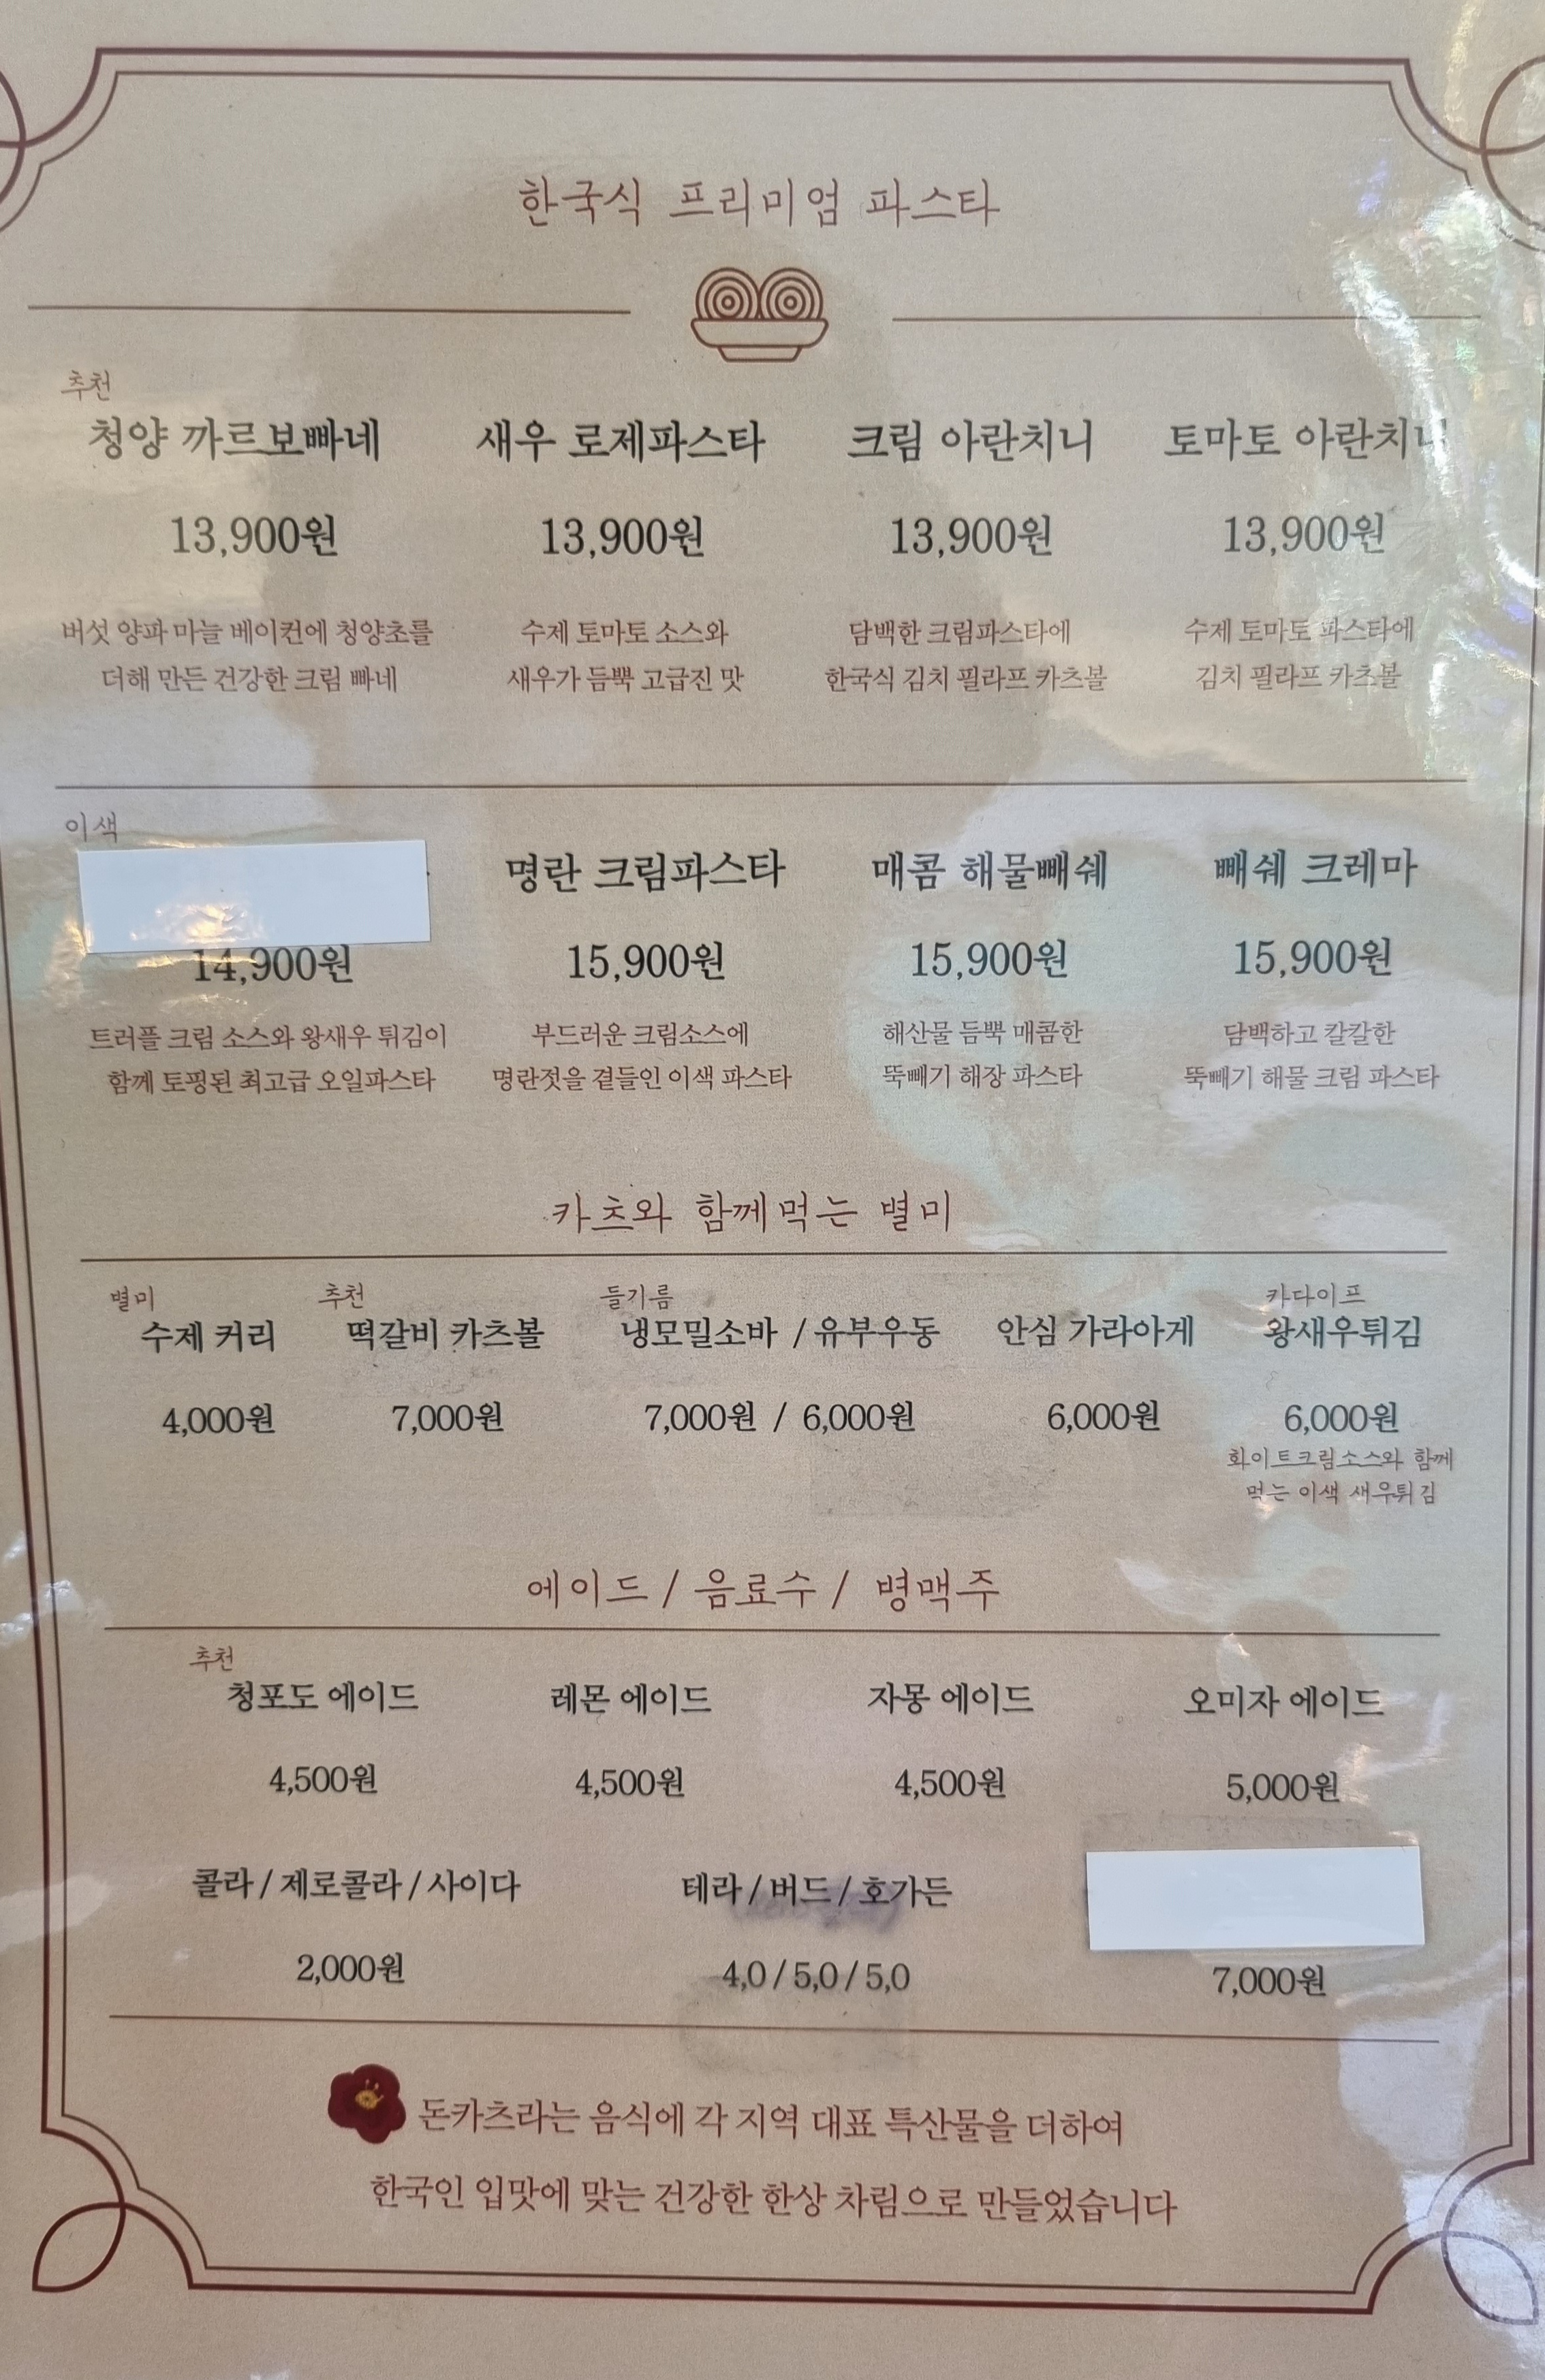 한국식 프리미엄 파스타
추천
청양 까르보빠네 새우 로제파스타 크림 아란치니 토마토 아란치니
13,900원 13,900원 13,900원 13,900원
버섯 양파 마늘 베이컨에 청양초를 수제 토마토 소스와 담백한 크림파스타에 수제 토마토 파스타에
더해 만든 건강한 크림 빠네 새우가 듬뿍 고급진 맛 한국식 김치 필라프 카츠볼 김치 필라프 카츠볼
이색
명란 크림파스타 매콤 해물빼쉐 빼쉐 크레마
14,900원 15,900원 15,900원 15,900원
트러플 크림 소스와 왕새우 튀김이 부드러운 크림소스에 해산물 듬뿍 매콤한 담백하고 칼칼한
함께 토핑된 최고급 오일파스타 명란젓을 곁들인 이색 파스타 뚝빼기 해장 파스타 뚝빼기 해물 크림 파스타
카츠와 함께먹는 별미
별미 추천 들기름 카다이프
수제 커리 떡갈비 카츠볼 냉모밀소바 / 유부우동 안심 가라아게 왕새우튀김
4,000원 7,000원 7,000원 / 6,000원 6,000원 6,000원
화이트크림소스와 함께
먹는 이색 새우튀김
에이드 / 음료수 / 병맥주
추천
청포도 에이드 레몬 에이드 자몽 에이드 오미자 에이드
4,500원 4,500원 4,500원 5,000원
콜라 / 제로콜라 / 사이다 테라 / 버드 / 호가든
2,000원 4,0 / 5,0 / 5,0 7,000원
돈카츠라는 음식에 각 지역 대표 특산물을 더하여
한국인 입맛에 맞는 건강한 한상 차림으로 만들었습니다